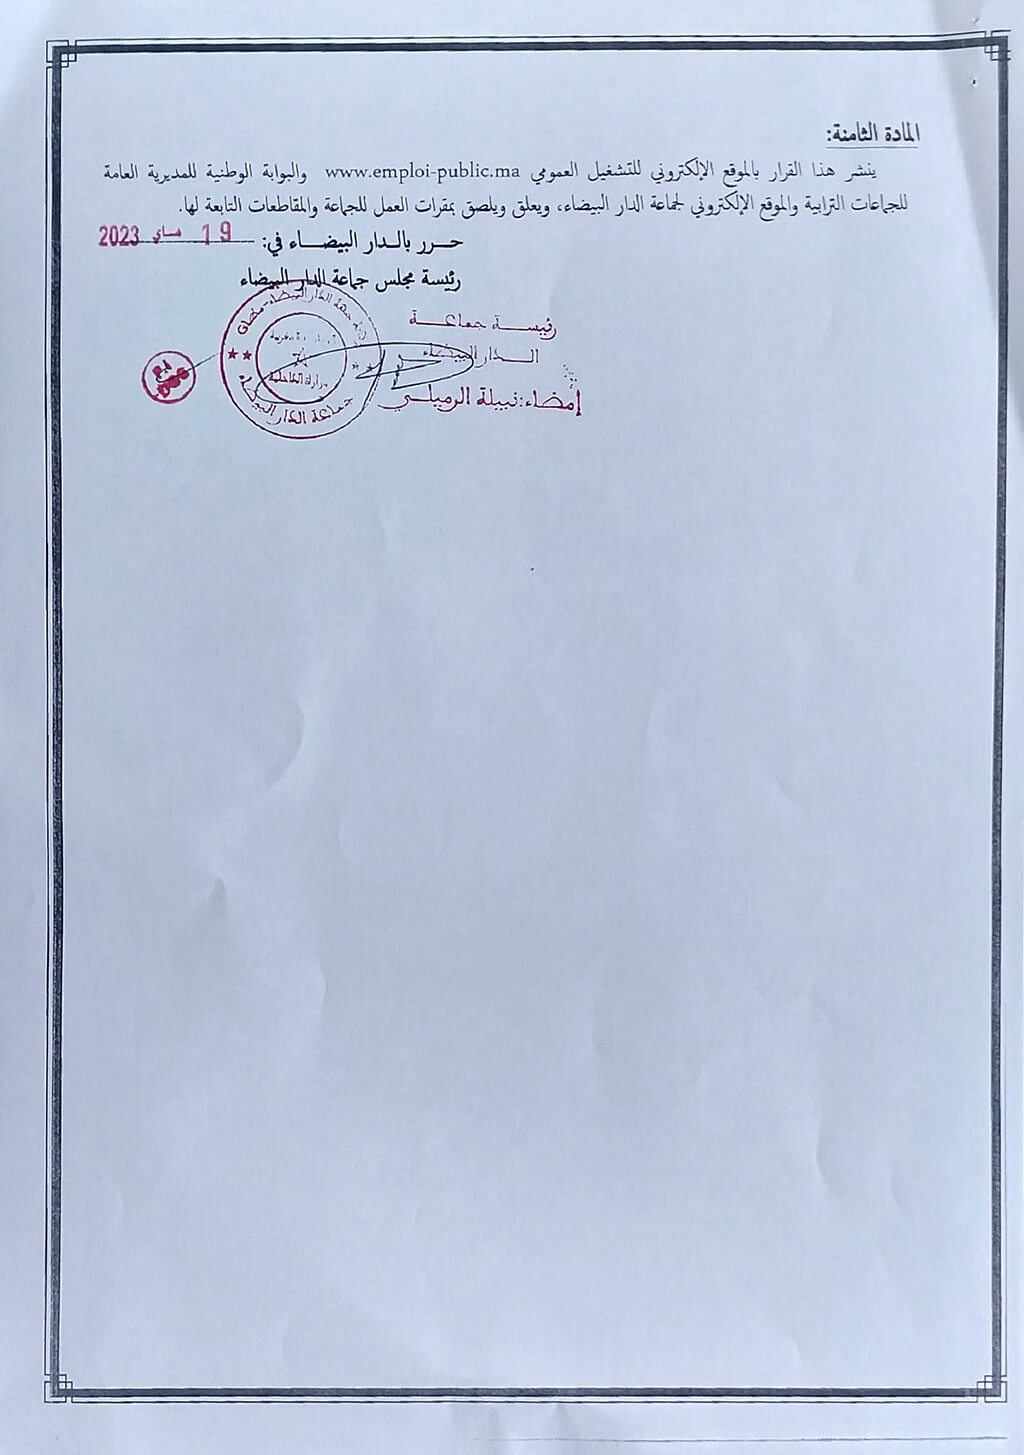 المادة الثامنة:
ينشر هذا القرار بالموقع الإلكتروني للتشغيل العمومي www.emploi-public.ma والبوابة الوطنية للمديرية العامة
للجماعات الترابية والموقع الإلكتروني لجماعة الدار البيضاء، ويعلق ويلصق بمقرات العمل للجماعة والمقاطعات التابعة لها.
حـــرر بالــدار البيضـــاء في: 19 مـاي 2023
رئيسة مجلس جماعة الدار البيضاء
رئيســـة جماعـــة
الـــدار البيضاء
إمضاء:نبيلة الرميلــي
جهة الدار البيضاء-سطات
وزارة الداخلية
جماعة الدار البيضاء